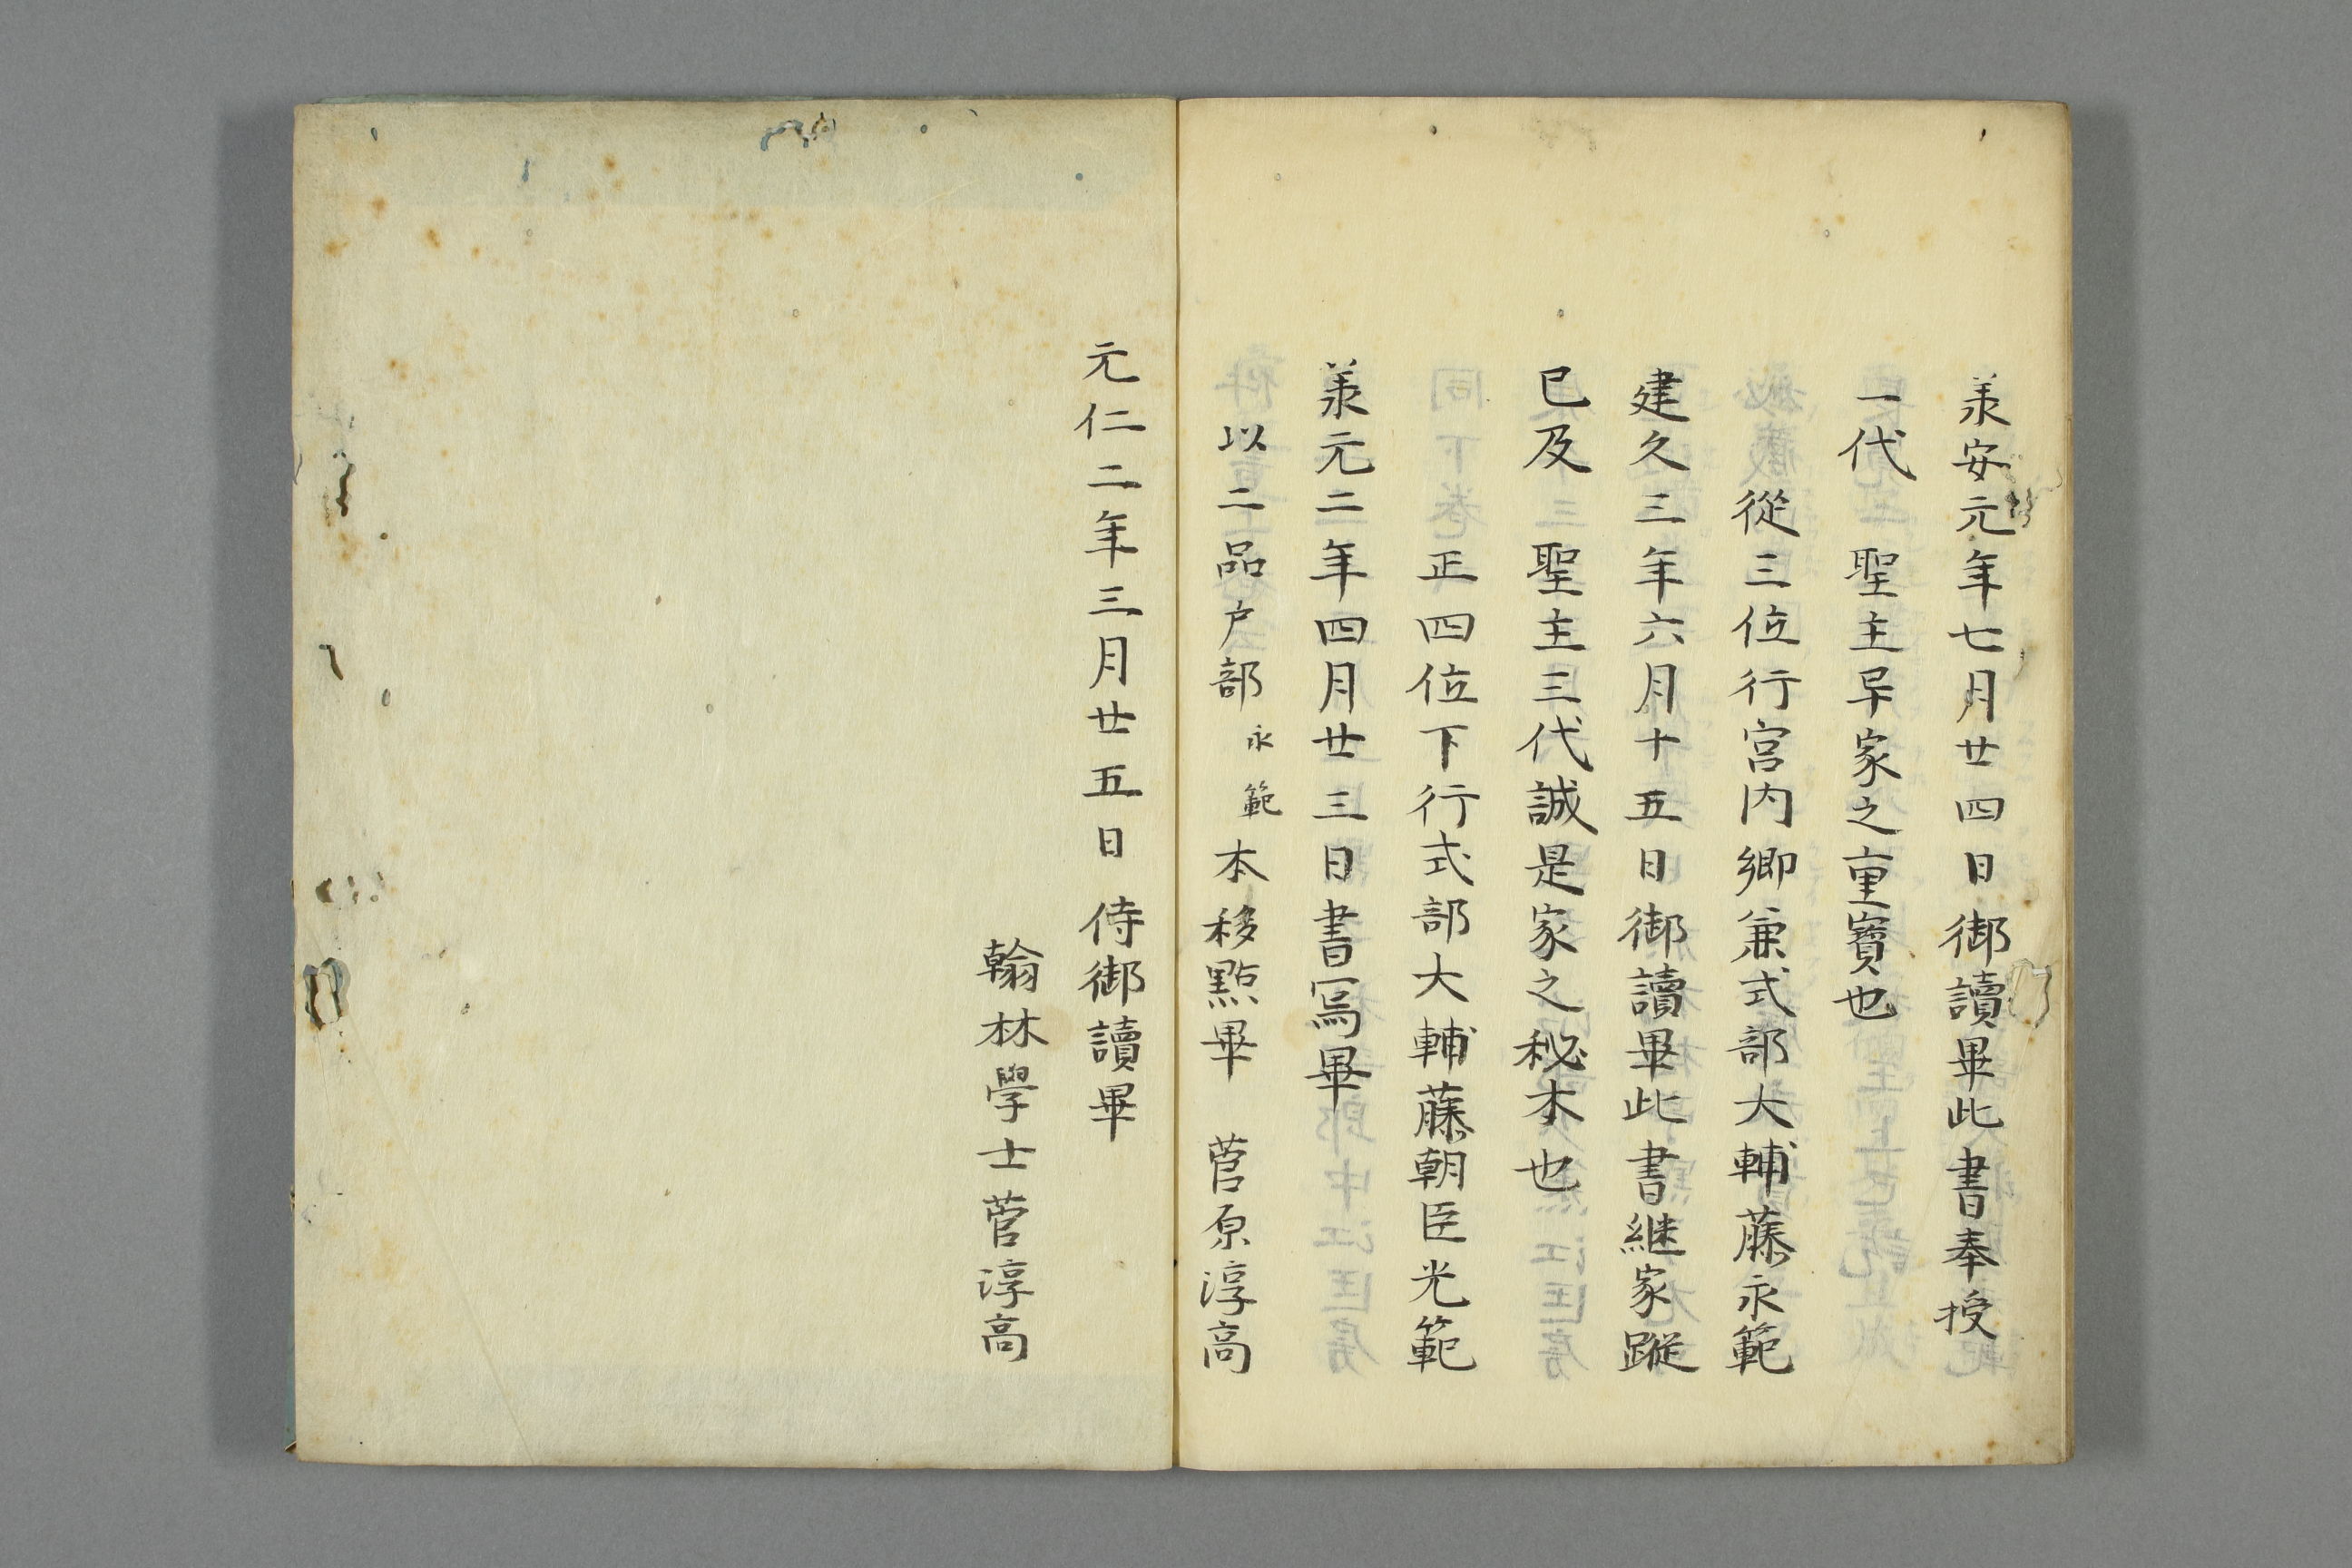 羕安元年七月廿四日御讀畢此書奉授
一代　聖主早家之重寳也
從三位行宮内卿兼式部大輔藤永範
建久三年六月十五日御讀畢此書継家蹤
已及　聖主三代誠是家之秘本也
正四位下行式部大輔藤朝臣光範
羕元二年四月廿三日書寫畢
以二品户部永範本移點畢　菅原淳高
元仁二年三月廿五日侍御讀畢
翰林學士菅淳高